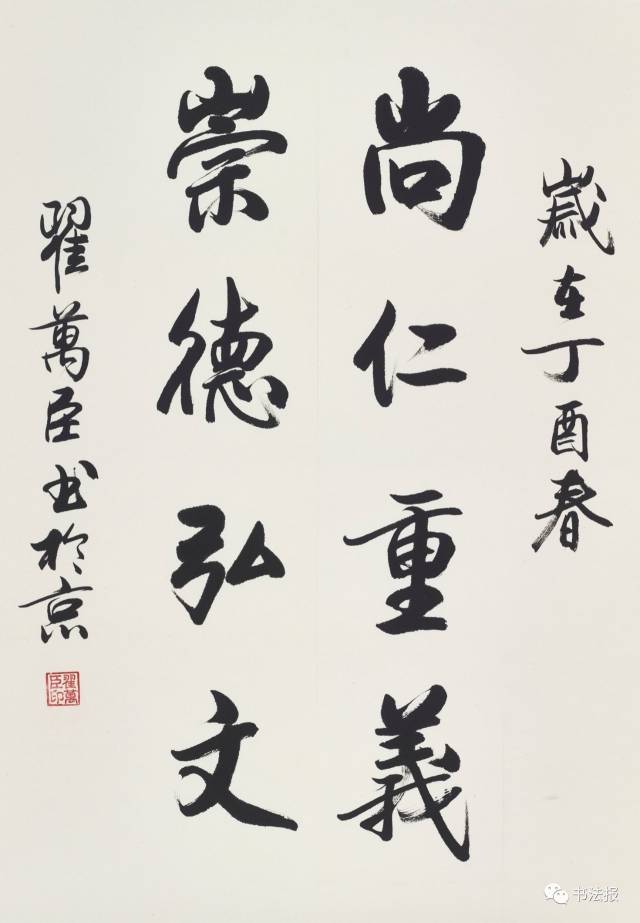 歲在丁酉春
尚仁重義
崇德弘文
翟萬臣书於京
翟萬臣印
书法报